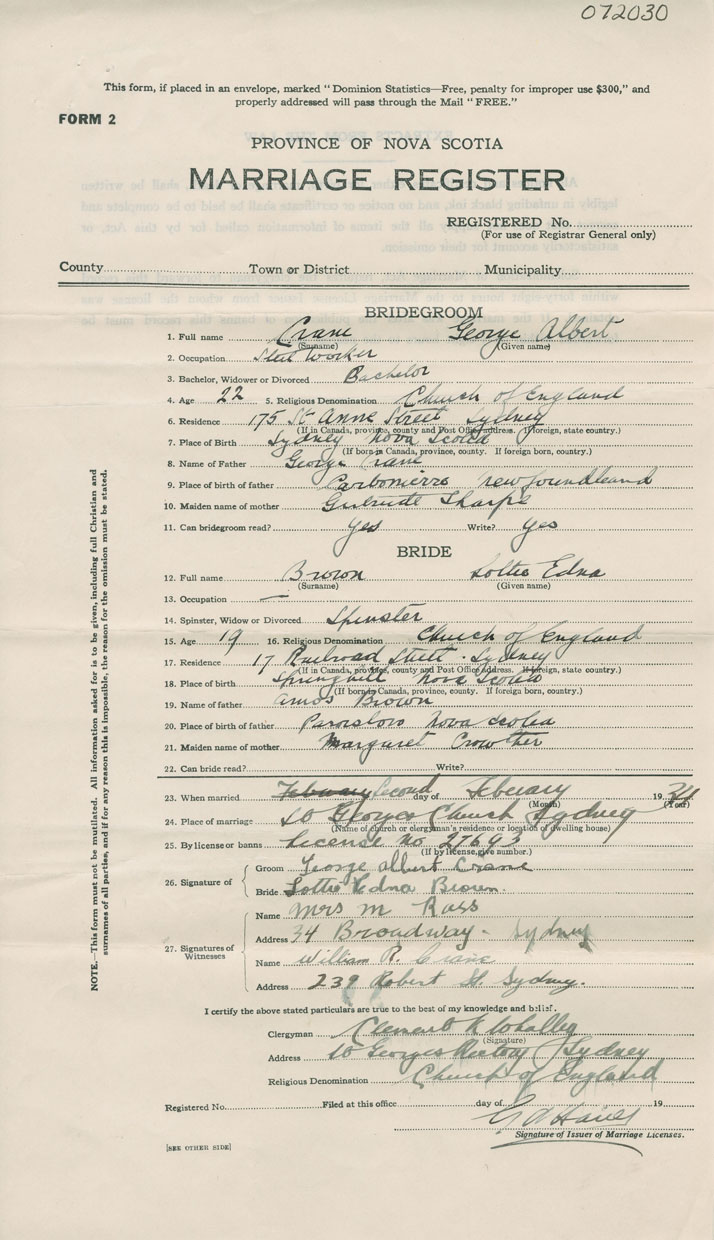 072030
This form, if placed in an envelope, marked "Dominion Statistics—Free, penalty for improper use $300," and
properly addressed will pass through the Mail "FREE."
FORM 2
PROVINCE OF NOVA SCOTIA
MARRIAGE REGISTER
REGISTERED No.
(For use of Registrar General only)
County Town or District Municipality
BRIDEGROOM
1. Full name Crane George Albert
(Surname) (Given name)
2. Occupation Steel Worker
3. Bachelor, Widower or Divorced Bachelor
4. Age 22 5. Religious Denomination Church of England
6. Residence 175 St Anne Street Sydney
(If in Canada, province, county and Post Office address. If foreign, state country.)
7. Place of Birth Sydney Nova Scotia
(If born in Canada, province, county. If foreign born, country.)
8. Name of Father George Crane
9. Place of birth of father Carbonierre newfoundleand
10. Maiden name of mother Gertrude Sharpe
11. Can bridegroom read? yes Write? yes
BRIDE
12. Full name Brown Lottie Edna
(Surname) (Given name)
13. Occupation —
14. Spinster, Widow or Divorced Spinster
15. Age 19 16. Religious Denomination Church of England
17. Residence 17 Railroad Street Sydney
(If in Canada, province, county and Post Office address. If foreign, state country.)
18. Place of birth Springhill Nova Scotia
(If born in Canada, province, county. If foreign born, country.)
19. Name of father Amos Brown
20. Place of birth of father Nova Scotia
21. Maiden name of mother Margaret Crowther
22. Can bride read? Write?
23. When married February Second day of February 19
(Month) (Year)
24. Place of marriage St Georges Church Sydney
(Name of church or clergyman's residence or location of dwelling house)
25. By license or banns License no 27693
(If by license, give number.)
26. Signature of
Groom George Albert Crane
Bride Lottie Edna Brown.
27. Signatures of Witnesses
Name Mrs M Ross
Address 34 Broadway - Sydney
Name William R. Crane
Address 239 Robert St. Sydney.
I certify the above stated particulars are true to the best of my knowledge and belief.
Clergyman Clement
(Signature)
Address St Georges Rectory Sydney
Religious Denomination Church of England
Registered No. Filed at this office day of 19
Signature of Issuer of Marriage Licenses.
[SEE OTHER SIDE]
NOTE.—This form must not be mutilated. All information asked for is to be given, including full Christian and
surnames of all parties, and if for any reason this is impossible, the reason for the omission must be stated.